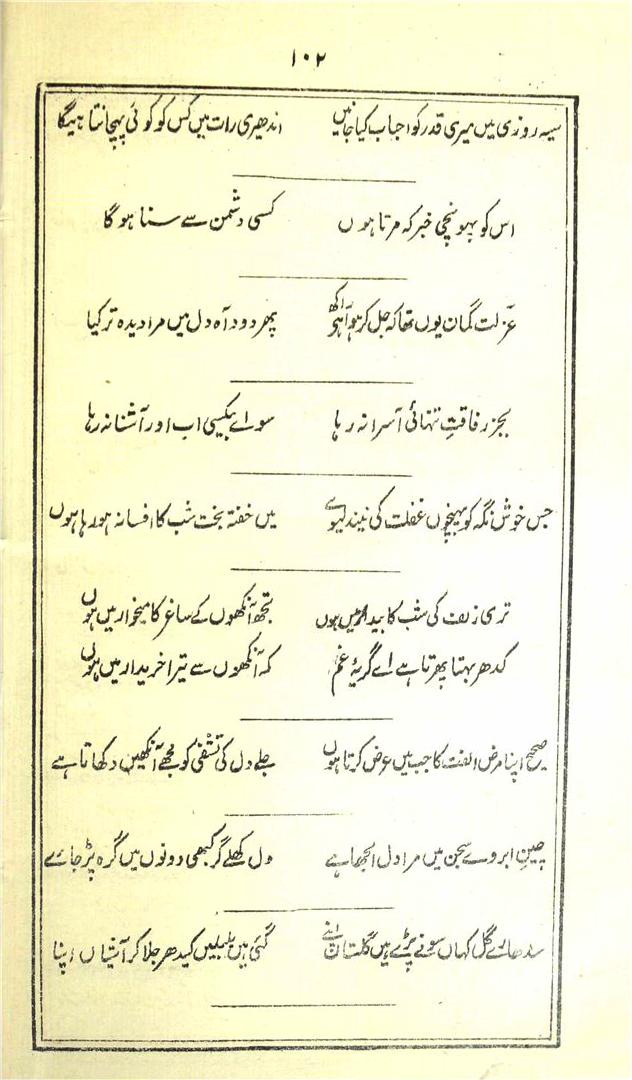 ۱۰۲
سیہ روزی میں میری قدر کو احباب کیا جانیں اندھیری رات میں کس کو کوئی پہچانتا ہیگا
اس کو پہونچی خبر کہ مرتا ہوں کسی دشمن سے سنا ہو گا
عزلت گمان یوں تھا کہ جل کر ہوا آکھ پھر دود آہ دل میں مرا دیدہ تر کیا
بجز رفاقتِ تنہائی آسرا نہ رہا سواے بیکسی اب اور آشنا نہ رہا
جس خوش نگہ کو پہنچوں غفلت کی نیند لیوے میں خفتہ بخت شب کا افسانہ ہو رہا ہوں
تری زلف کی شب کا بیدار میں ہوں تجھ آنکھوں کے ساغر کا میخوار میں ہوں
کدھر بہتا پھرتا ہے اے گریۂ غم کہ آنکھوں سے تیرا خریدار میں ہوں
صحیح اپنا مرض الفت کا جب میں عرض کرتا ہوں جلے دل کی تشفی کو مجھے آنکھیں دکھاتا ہے
چینِ ابروے سجن میں مرا دل الجھا ہے دل کھلے گر کبھی دونوں میں گرہ پڑ جاے
سدھارے گل کہاں سونے پڑے ہیں گلستاں اپنے گئی ہیں بلبلیں کیدھر جلا کر آشیاں اپنا